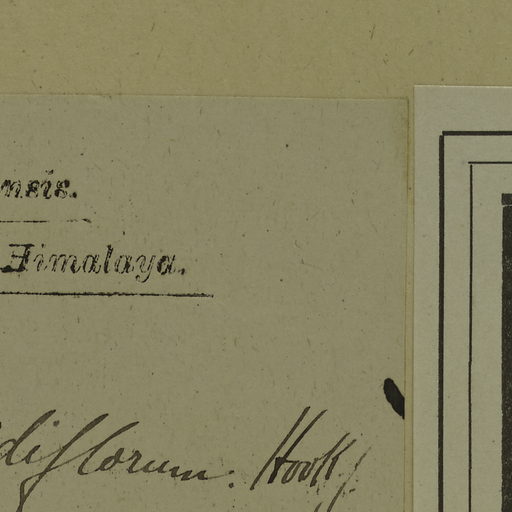 nsis.
Himalaya.
diflorum. Hook f.